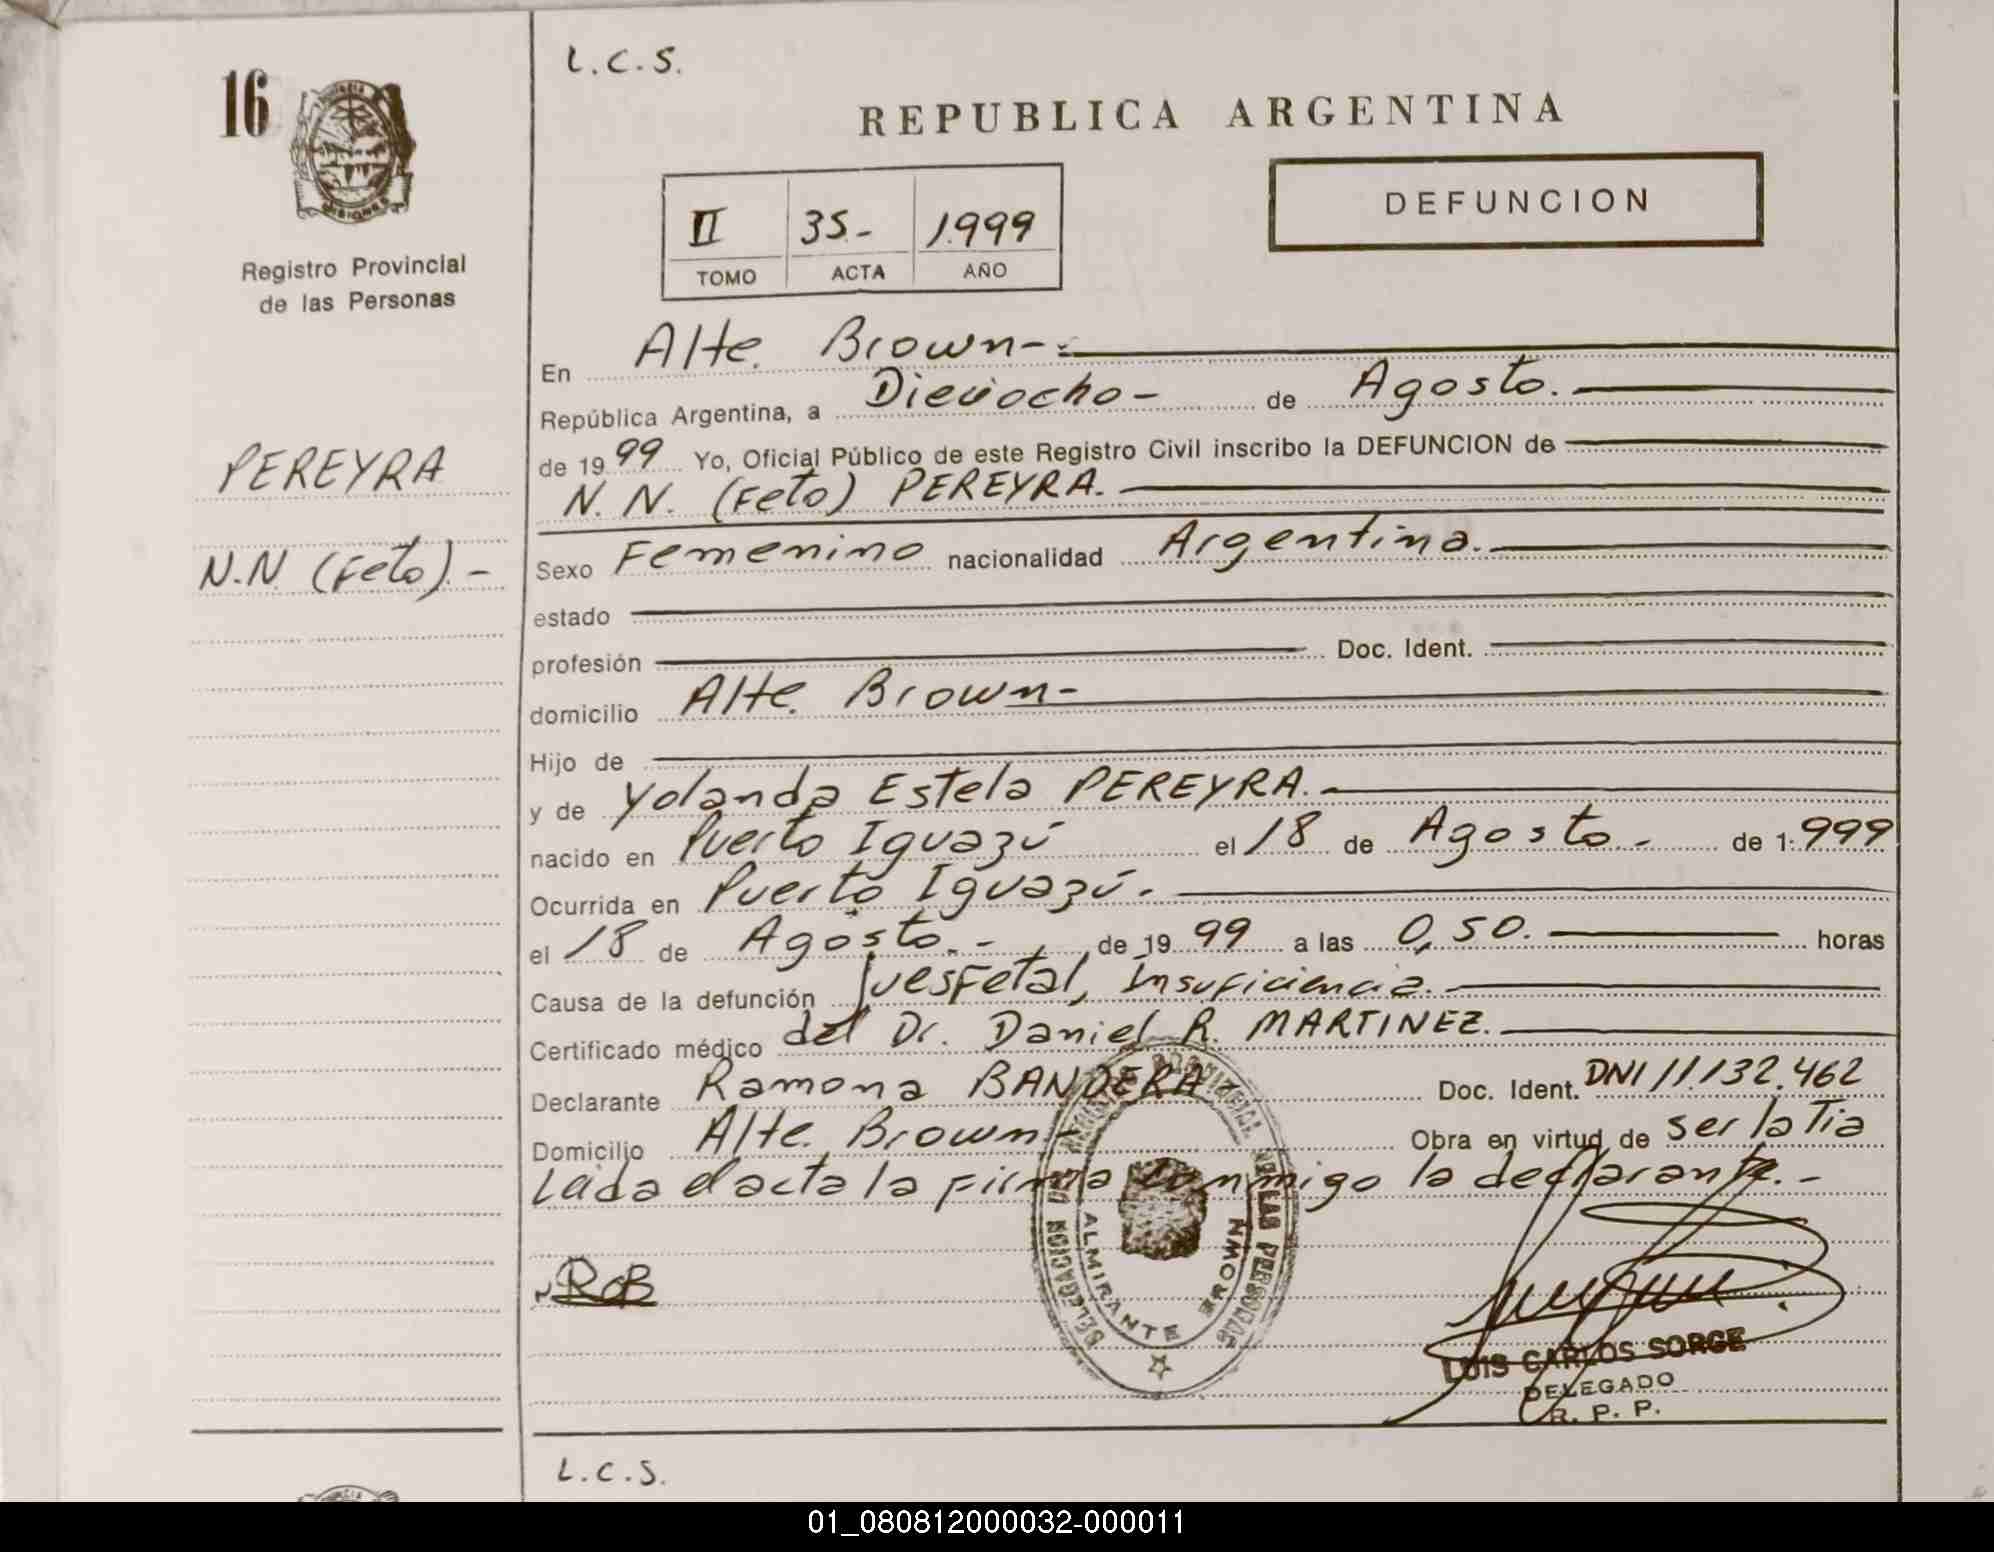 L.C.S.
16
REPUBLICA ARGENTINA
DEFUNCION
II 35.- 1.999
TOMO ACTA AÑO
MISIONES
Registro Provincial
de las Personas
PEREYRA
N.N. (Feto).-
En Alte. Brown-
República Argentina, a Dieciocho- de Agosto.
de 1999 Yo, Oficial Público de este Registro Civil inscribo la DEFUNCION de
N. N. (Feto) PEREYRA.
Sexo Femenino nacionalidad Argentina.
estado
profesión Doc. Ident.
domicilio Alte. Brown-
Hijo de
y de Yolanda Estela PEREYRA.
nacido en Puerto Iguazú el 18 de Agosto.- de 1.999
Ocurrida en Puerto Iguazú.
el 18 de Agosto.- de 1999 a las 0,50. horas
Causa de la defunción Insuficiencia.
Certificado médico del Dr. Daniel R. MARTINEZ.
Declarante Ramona BANDERA- Doc. Ident. DNI 11.132.462
Domicilio Alte. Brown- Obra en virtud de ser la Tia
Leida el acta la firma conmigo la declarante.-
RB
DELEGACION DEL REGISTRO PROVINCIAL DE LAS PERSONAS
ALMIRANTE BROWN
LUIS CARLOS SORGE
DELEGADO
R. P. P.
L.C.S.
01_080812000032-000011